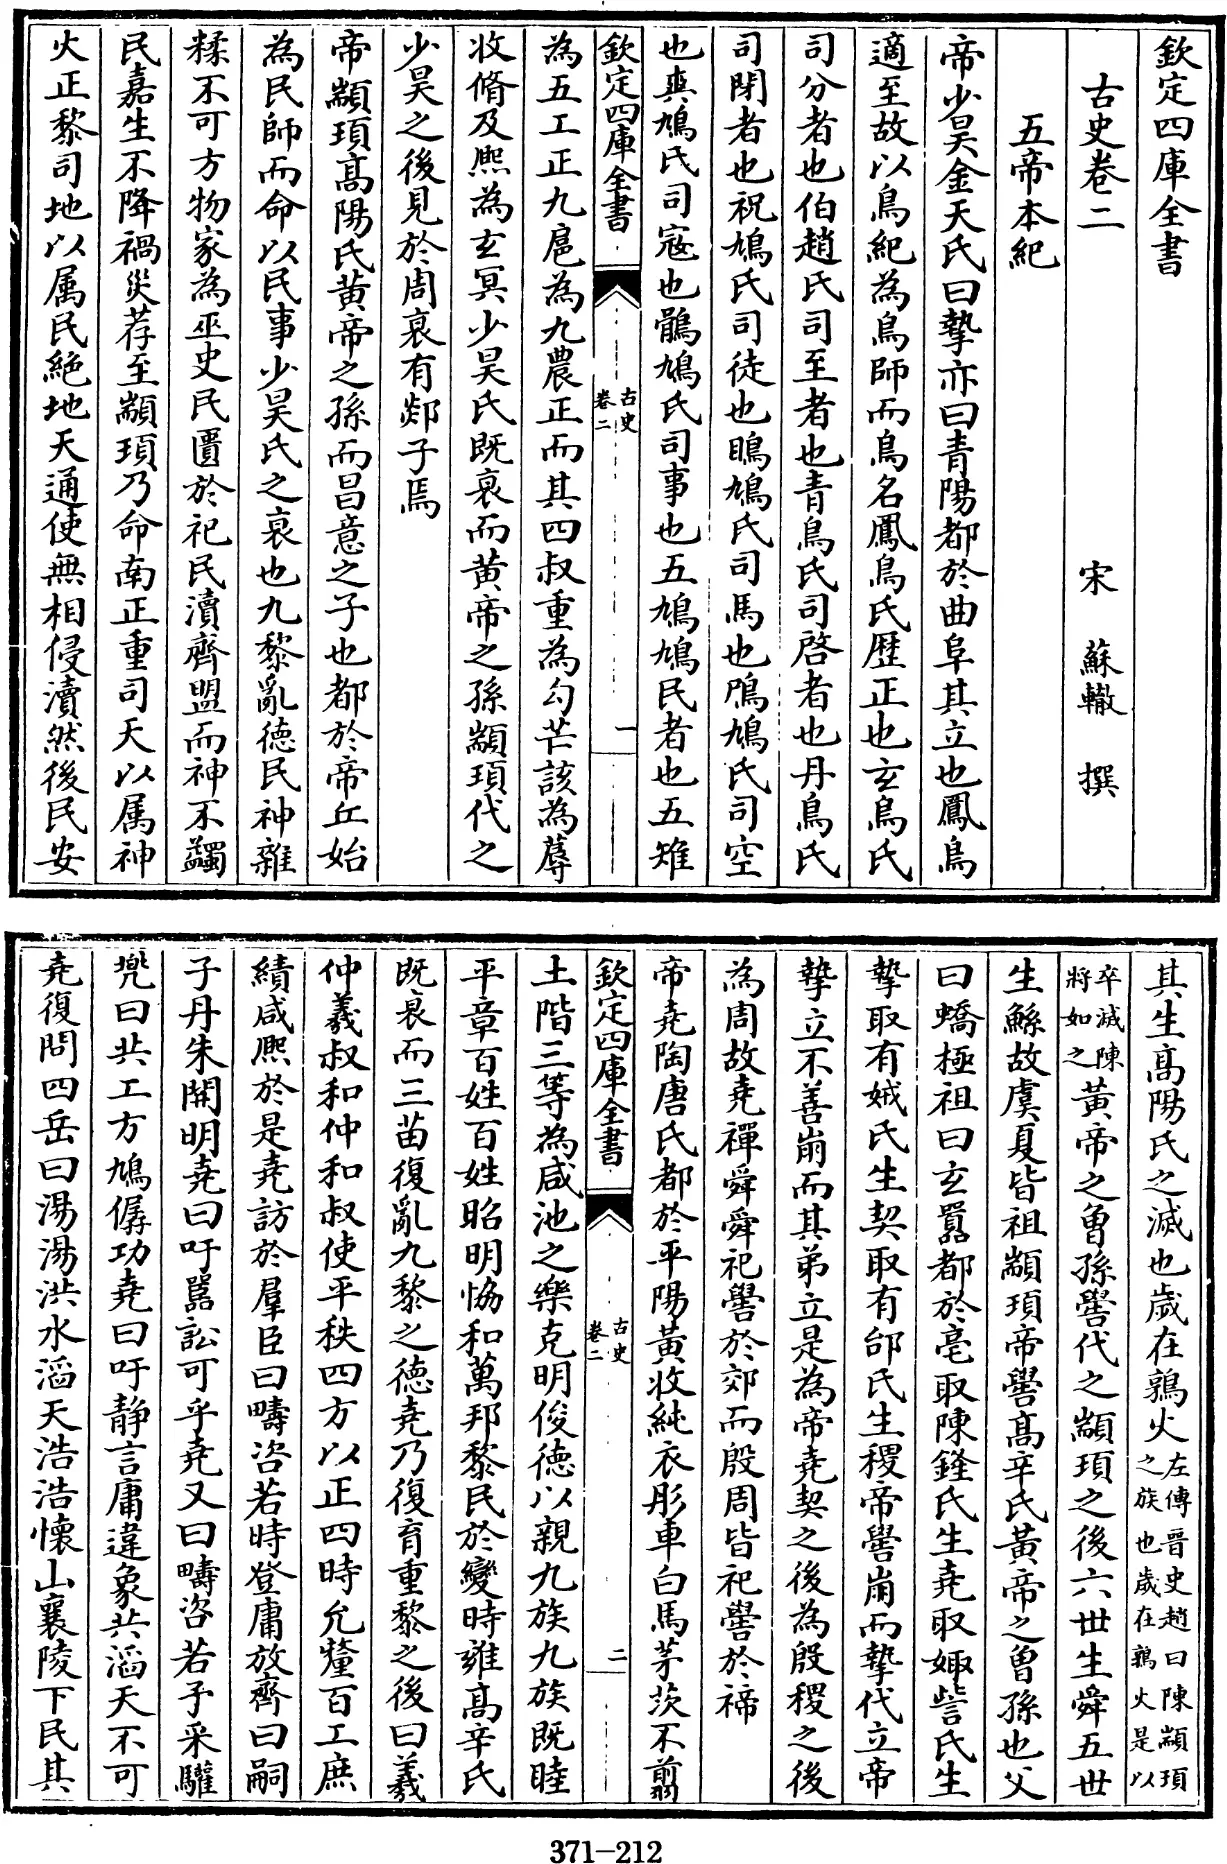 欽定四庫全書
古史卷二 宋 蘇轍 撰
五帝本紀
帝少昊金天氏曰摯亦曰青陽都於曲阜其立也鳳鳥
適至故以鳥紀為鳥師而鳥名鳳鳥氏歴正也玄鳥氏
司分者也伯趙氏司至者也青鳥氏司啓者也丹鳥氏
司閉者也祝鳩氏司徒也鵙鳩氏司馬也鳲鳩氏司空
也爽鳩氏司寇也鶻鳩氏司事也五鳩鳩民者也五雉
欽定四庫全書
古史
卷二
一
為五工正九扈為九農正而其四叔重為勾芒該為蓐
收脩及熈為玄冥少昊氏既衰而黄帝之孫顓頊代之
少昊之後見於周衰有郯子焉
帝顓頊高陽氏黄帝之孫而昌意之子也都於帝丘始
為民師而命以民事少昊氏之衰也九黎亂德民神雜
糅不可方物家為巫史民匱於祀民瀆齊盟而神不蠲
民嘉生不降禍災荐至顓頊乃命南正重司天以属神
火正黎司地以属民絶地天通使無相侵瀆然後民安
其生高陽氏之滅也歲在鶉火左傳晉史趙曰陳顓頊
之族也歲在鶉火是以
卒滅陳
將如之黄帝之曾孫嚳代之顓頊之後六世生舜五世
生鯀故虞夏皆祖顓頊帝嚳高辛氏黄帝之曾孫也父
曰蟜極祖曰玄囂都於亳取陳鋒氏生堯取娵訾氏生
摯取有娀氏生契取有邰氏生稷帝嚳崩而摯代立帝
摯立不善崩而其弟立是為帝堯契之後為殷稷之後
為周故堯禪舜舜祀嚳於郊而殷周皆祀嚳於禘
帝堯陶唐氏都於平陽黄收純衣彤車白馬茅茨不翦
欽定四庫全書
古史
卷二
二
土階三等為咸池之樂克明俊德以親九族九族既睦
平章百姓百姓昭明恊和萬邦黎民於變時雍高辛氏
既衰而三苗復亂九黎之德堯乃復育重黎之後曰羲
仲羲叔和仲和叔使平秩四方以正四時允釐百工庶
績咸熈於是堯訪於羣臣曰疇咨若時登庸放齊曰嗣
子丹朱開明堯曰吁嚚訟可乎堯又曰疇咨若予采驩
兜曰共工方鳩僝功堯曰吁静言庸違象共滔天不可
堯復問四岳曰湯湯洪水滔天浩浩懷山襄陵下民其
371-212